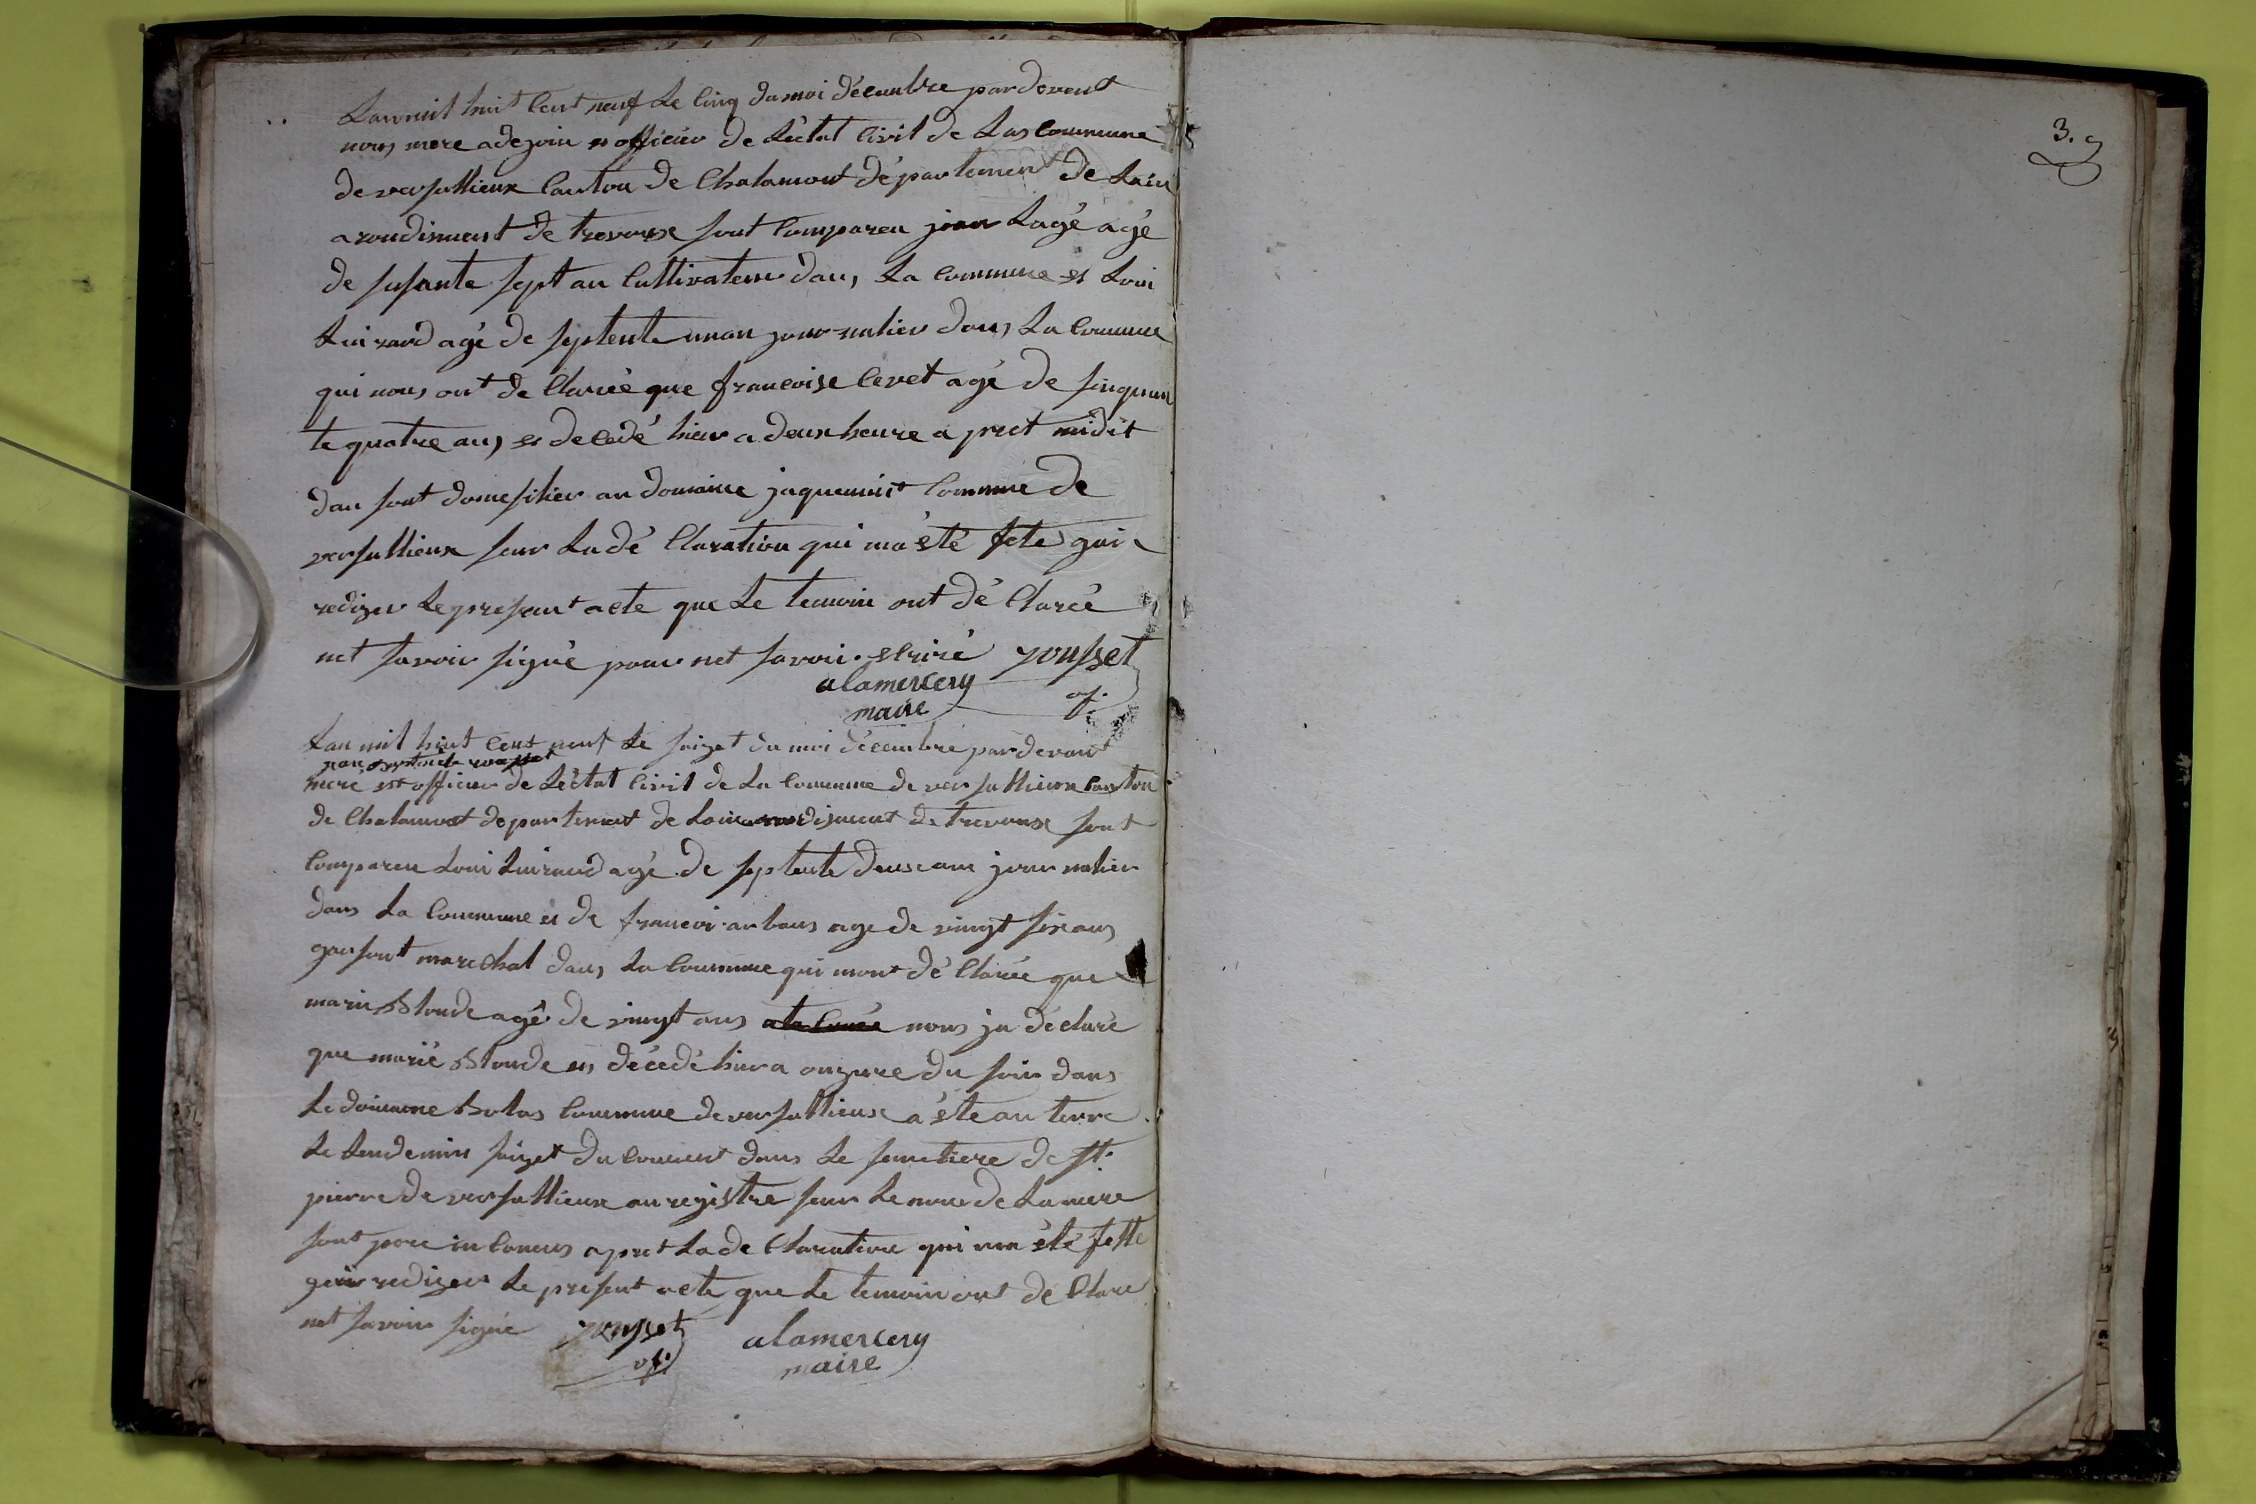 Lan mil huit Cent neuf Le Cinq du moi décembre par devent
nous mere adejoin es officier de Létat Civil de Las Commune
de versallieux Canton de Chalamont département de Lain
arondisment de trevouxe sont Compareu jean Lagé agé
de susante sept an Cultivateur dans La Commune es Loui
Luirard agé de septente un an journalier dans La Commune
qui nous ont de Clareé que francoise Cevet agé de sinquan
te quatre ans es decedé hier a deux heure a pret midit
dan sont domesilier au domaine jaquemint Commune de
versallieux seur La dé Claration qui ma été fete gai
rediger Le presant acte que Le temoin ont dé Clareé
net savoir signé pour net savoir ecriré rousset
alamercery of.
maire
Lan mil huit Cent neuf Le saizet du moi décembre par devant
mere est officier de Létat Civil de La Commune de versallieux Canton
de Chalamont departement de Lain arondisment de trevouxe sont
Compareu Loui Luirard agé de septente deuse ans journalier
dans La Commune es de francoi arbans age de vingt six ans
garsont marechal dans La Commune qui mont dé Clareé que
marie Blonde agé de vingt ans nous ja déclaré
que marié Blonde es décedé hier a onzure du soir dans
Le domaine Bolas Commune de versallieux a éte an terre
Le Lendemin saizet du Courent dans Le semetiere de St.
pierre de versallieux anregistre seur Le nom de La mere
sont pere in Coneus apret La de Claration qui ma été fette
gai rediger Le presant acte que Le temoin ont de Clare
net savoir signé rousset alamercery
of. maire
3. 9